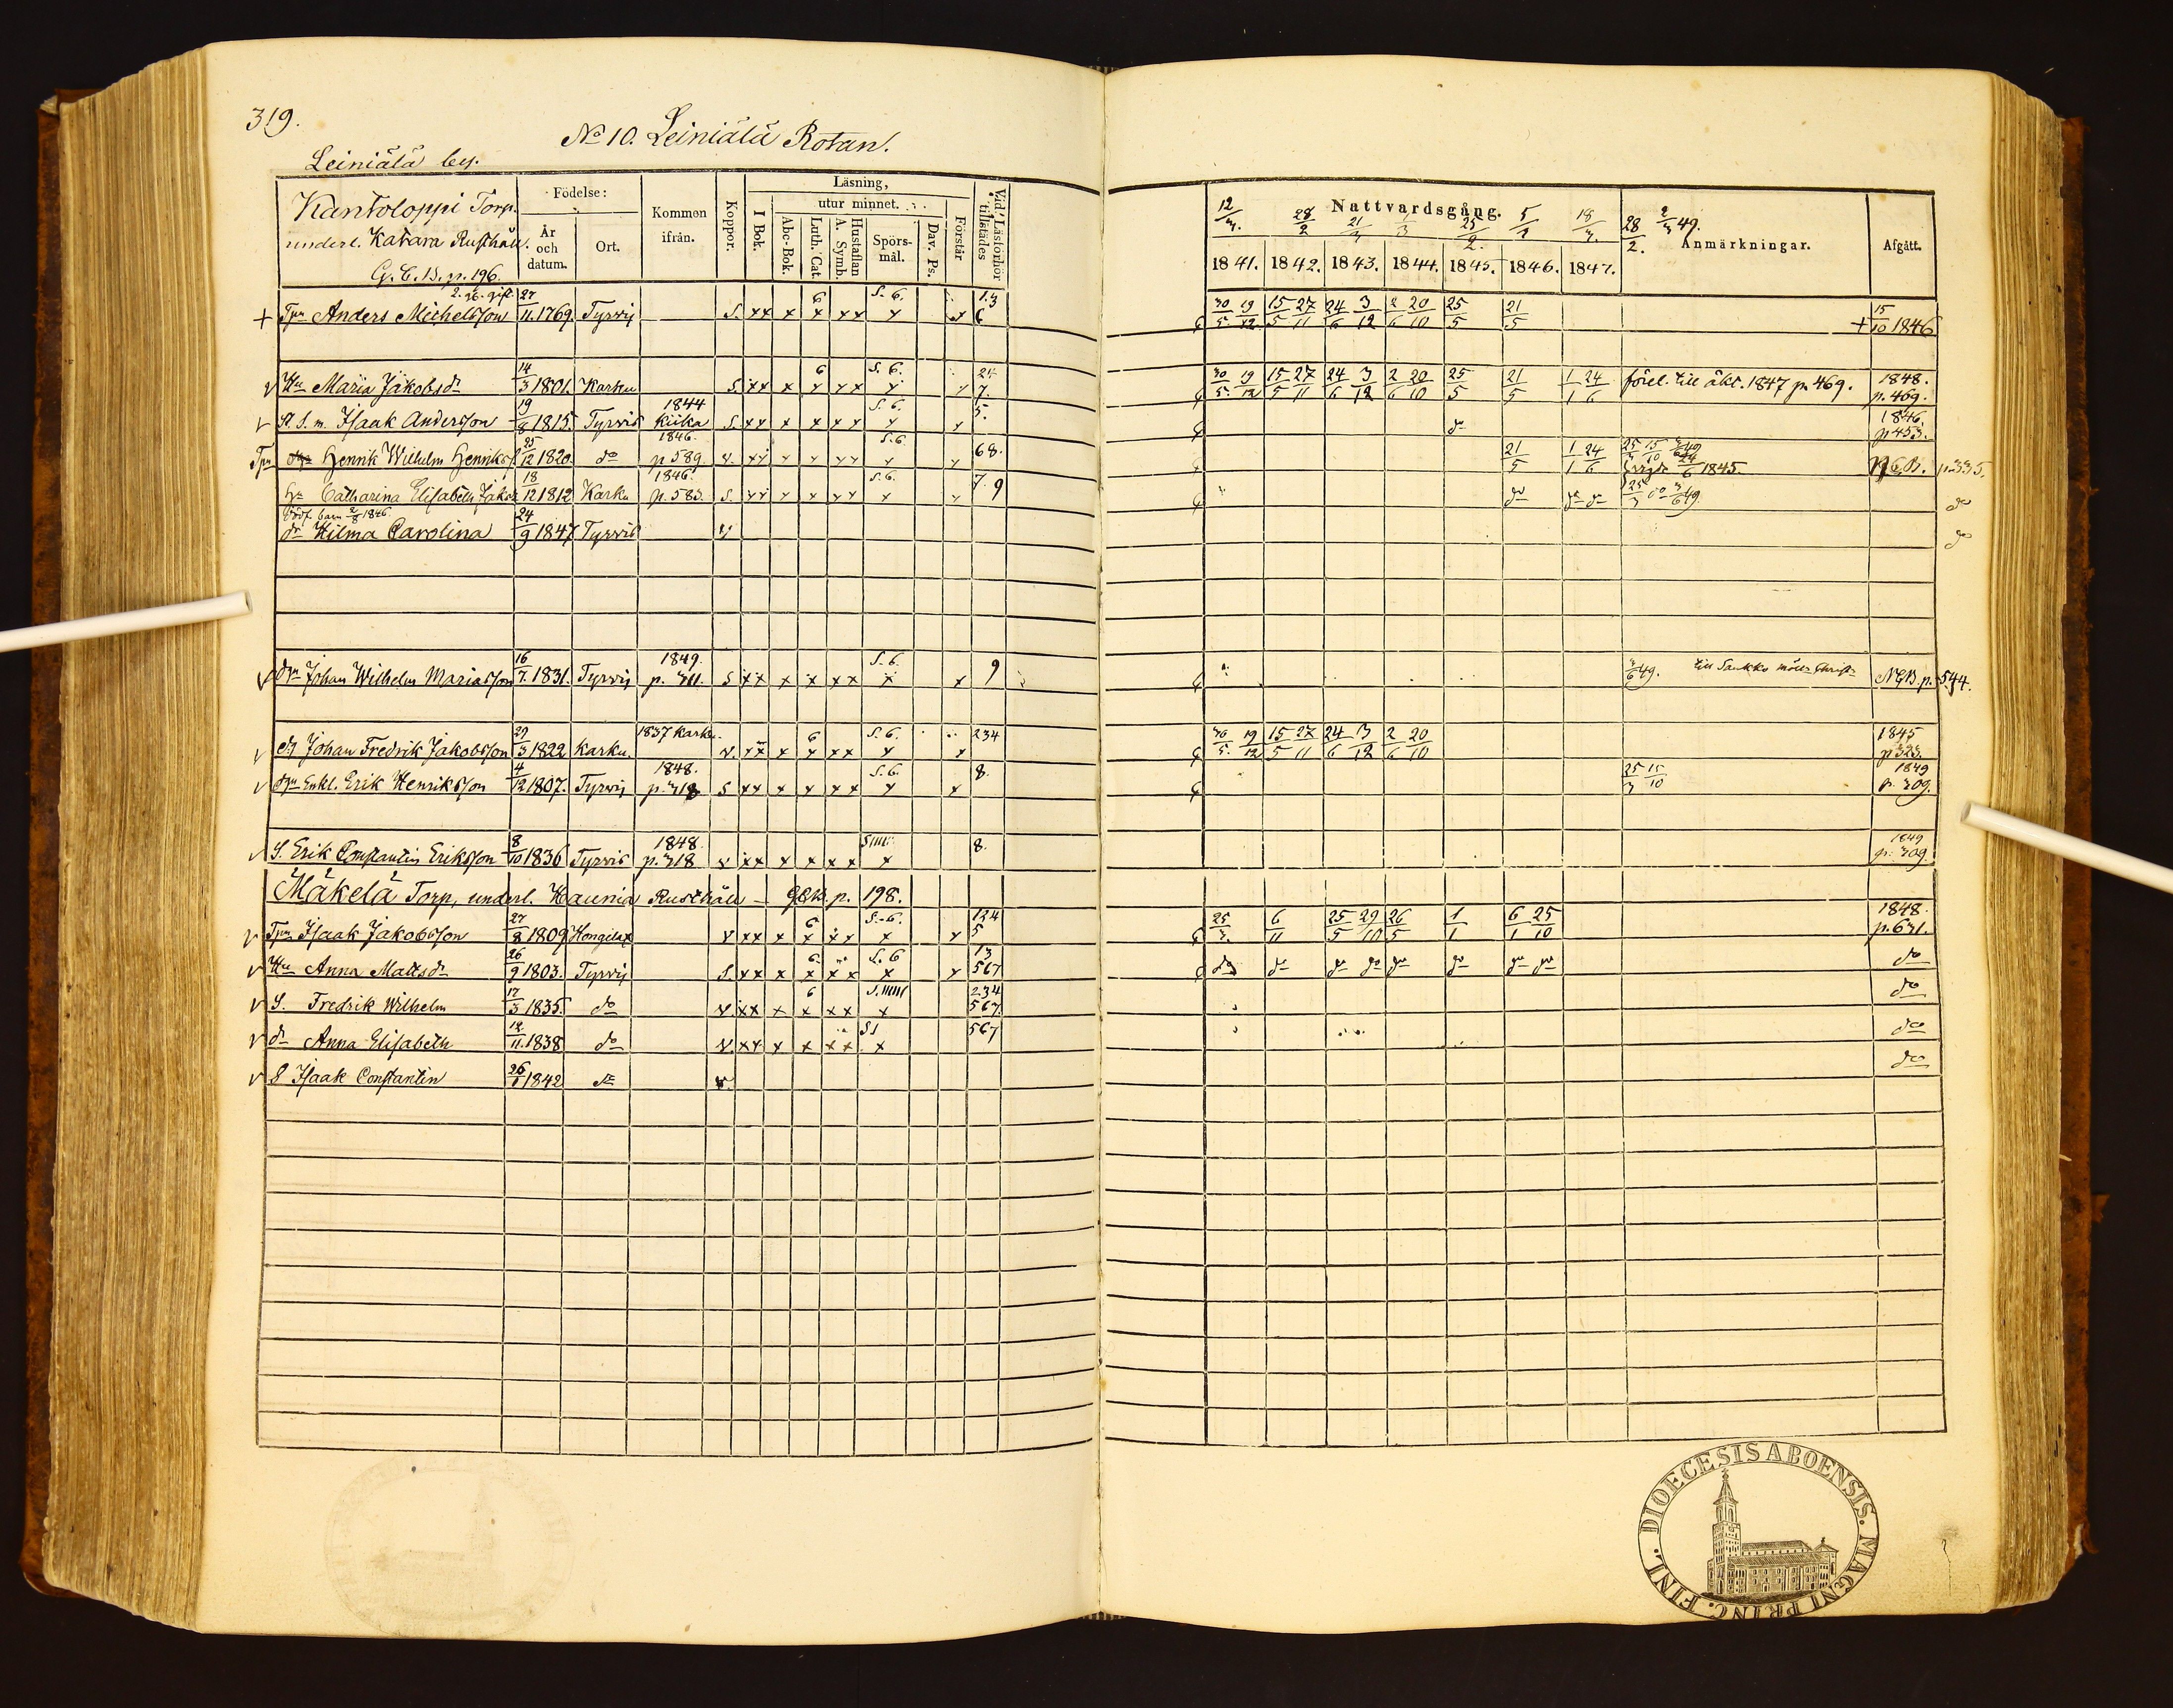 319.
No 10. Leiniälä Rotan.
Leiniälä by.
Kantoloppi Torp.
underl. Katara Rusthåll.
G. C. B. p. 196.
Födelse:
År och datum.
Ort.
Kommen ifrån.
Koppor.
Läsning,
I Bok.
utur minnet.
Abc-Bok.
Luth. Cat.
Hustaflan A. Symb.
Spörs-mål.
Dav. Ps.
Förstår
Vid Läsförhör tillstädes
Nattvardsgång.
12/3. 28/2 21/3 1/3 25/2. 5/2 18/3. 28/2. 2/3 49.
1841. 1842. 1843. 1844. 1845. 1846. 1847.
Anmärkningar.
Afgått.
2. gg. gift.
+ Tpr Anders Michelsson 27/11. 1769. Tyrvis S. xx x x xx x x 6 S. 6. 1.3 6 30/5 19/12 15/5 27/11 24/6 3/12 2/6 20/10 25/5 21/5 + 15/10 1846
v Hu Maria Jakobsdr 14/3 1801. Karku S. xx x x xx x x 6 S. 6. 24 7. 30/5 19/12 15/5 27/11 24/6 3/12 2/6 20/10 25/5 21/5 1/1 24/6 förel. till äkt. 1847 p 469. 1848. p. 469.
v St. S. m. Isaak Andersson 19/8 1815. Tyrvis 1844 Kiika S. xx x x xx x x S. 6. 5. do 1846. p 453.
Tpr Henrik Wilhelm Henriks 25/12 1820. do 1846. p 589. v. xx x x xx x x S. 6 68. 21/5 1/1 24/6 25/3 15/10 3/6 49 vigd 24/6 1845. N.C.B. p. 335.
Hu Catharina Elisabeth Jakobs 18/12 1812 Karku 1846. p. 583. S. xx x x xx x x S. 6. 7. 9 do do do 25/3 do 3/6 49. do
dödf. barn 2/8 1846
dr Hilma Carolina 24/9 1847 Tyrvis v do
v dgr Johan Wilhelm Mariasson 16/7. 1831. Tyrvis 1849. p. 311. S xx x x xx x x S. 6. 9 3/6 49. till Sankko NCB. p. 544.
v dg Johan Fredrik Jakobsson 29/3 1822 Karku. 1837 Karku. v. xx x x xx x x 6 S. 6. 234 30/5. 19/12 15/5 27/11 24/6 3/12 2/6 20/10 1845 p 323.
v dgr Enkl. Erik Henriksson 4/12 1807. Tyrvis 1848. p. 318 S xx x x xx x x S. 6. 8. 25/3 15/10 1849 p. 309.
v S. Erik Constantin Eriksson 8/10 1836 Tyrvis 1848. p. 318 v xx x x xx x 8. 1849 p. 309
Mäkelä Torp, underl. Haunia Rusthåll — GCB. p. 198.
v Tpr Isaak Jakobsson 27/8 1809 Hongilax v xx x x xx x x 6 S. 6. 124 5 25/3. 6/11 25/5 29/10 26/5 1/1 6/1 25/10 1848. p. 631.
v Hu Anna Mattsdr 26/9 1803. Tyrvis S. xx x x xx x x 6 S. 6 13 567 do do do do do do do do do
v S. Fredrik Wilhelm 17/3 1835. do v. xx x x xx x 6 234 567. do
v dr Anna Elisabeth 12/11. 1838 do v. xx x x xx x S1 567 do
v S Isaak Constantin 26/1 1842 do v. do
DIOECESIS ABOENSIS. MAGNI PRINC. FINL.